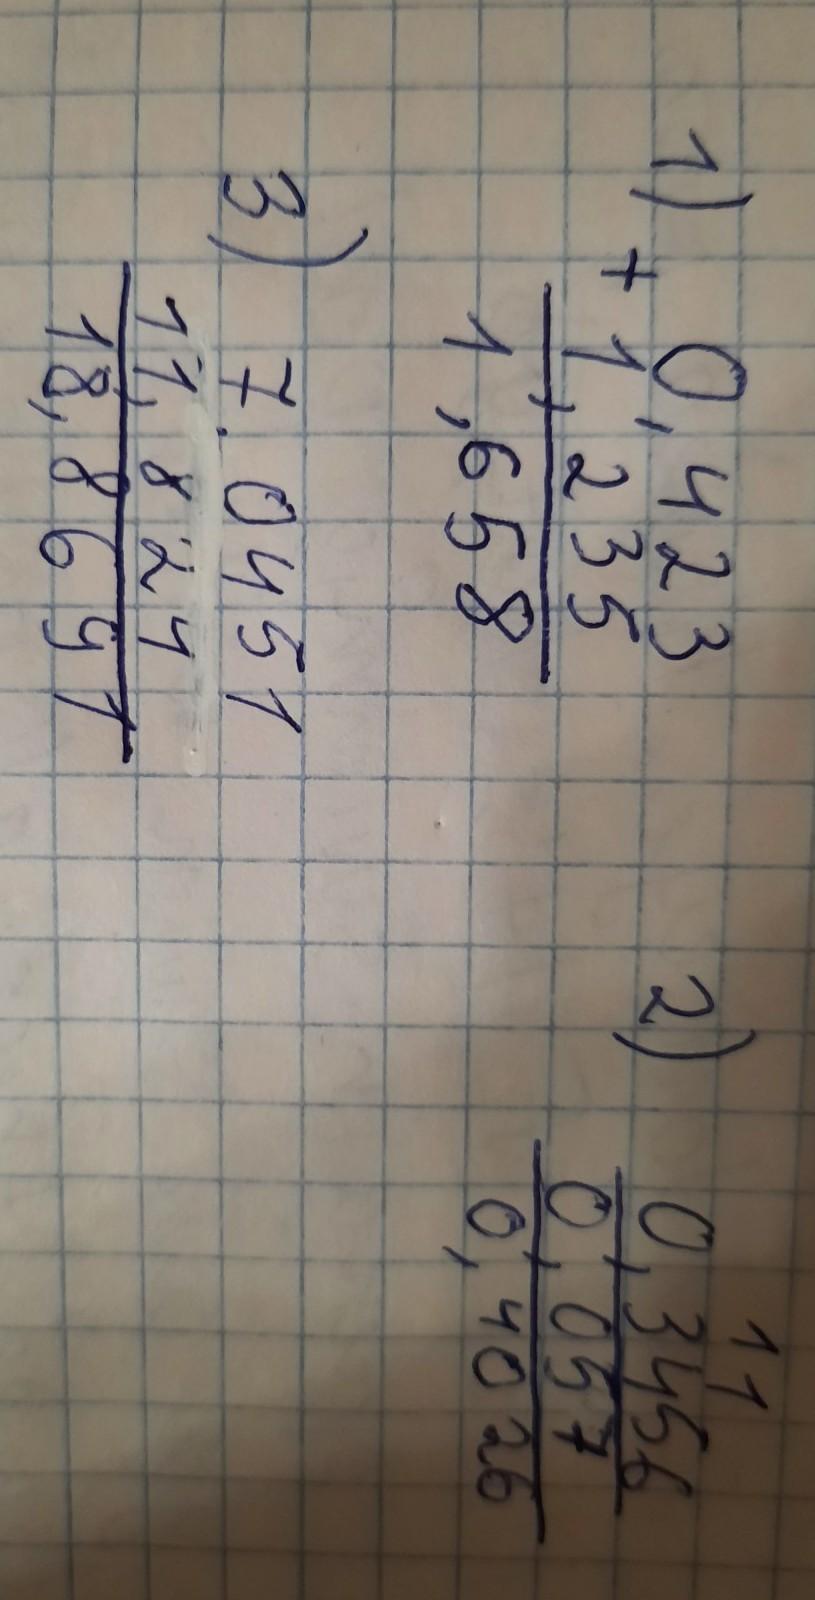 1) 0,423
+ 1,235
1,658
2) 11
0,3456
0,057
0,4026
3) 7.0451
11,824
18,8691